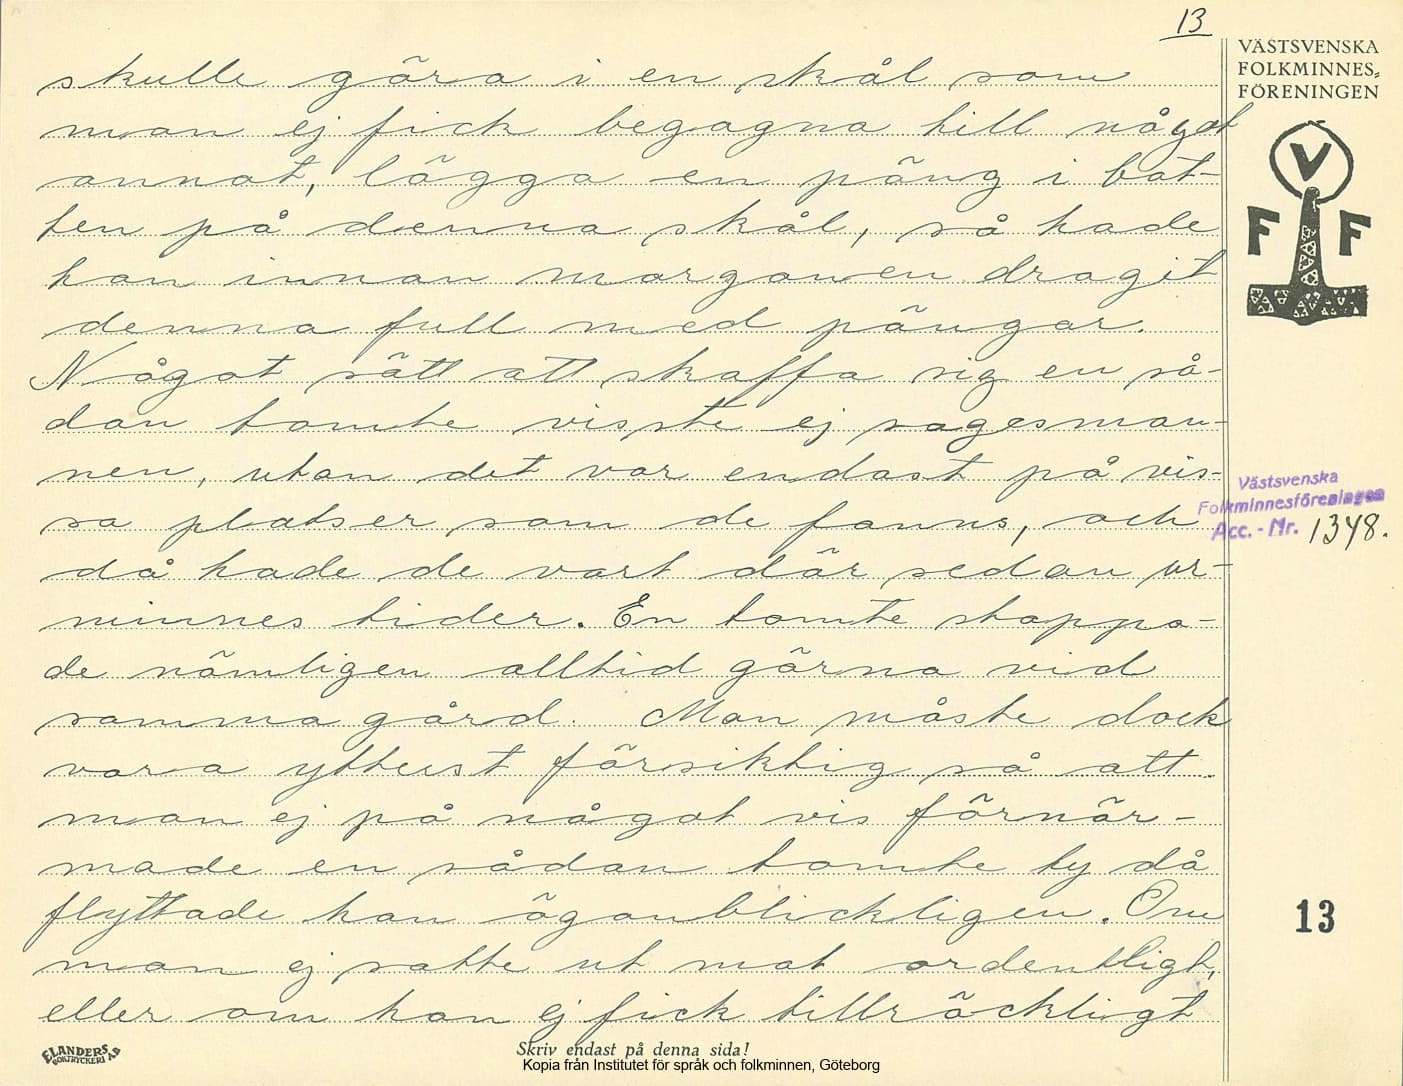 13
VÄSTSVENSKA
FOLKMINNES-
FÖRENINGEN
skulle göra i en skål som
man ej fick begagna till något
annat, lägga en päng i båt-
ten på denna skål, så hade
han innan morgonen dragit
denna full med pängar.
Något sätt att skaffa sig en så-
dan tomte visste ej sagesman-
nen, utan det var endast på vis-
sa platser som de fanns, och
då hade de vart där sedan ur-
minnes tider. En tomte stoppa-
de nämligen alltid gärna vid
samma gård. Man måste dock
vara ytterst försiktig så att
man ej på något vis förnär-
made en sådan tomte ty då
flyttade han ögonblickligen. Om
man ej satte ut mat ordentligt,
eller om han ej fick tillräckligt
V
F F
Västsvenska
Folkminnesföreningen
Acc. - Nr. 1348.
13
ELANDERS
BOKTRYCKERI AB
Skriv endast på denna sida!
Kopia från Institutet för språk och folkminnen, Göteborg